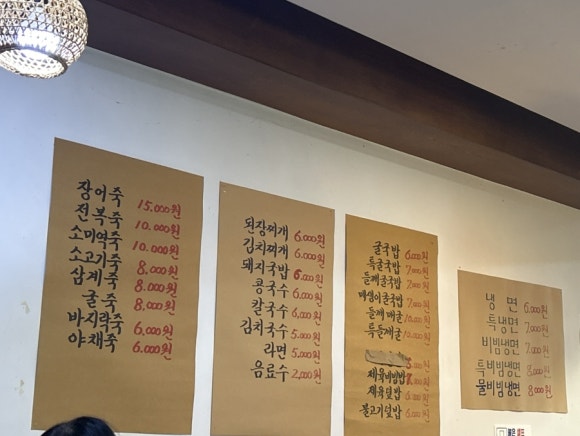 장어죽 15.000원
전복죽 10.000원
소미역죽 10.000원
소고기죽 8.000원
삼계죽 8.000원
굴죽 8,000원
바지락죽 6,000원
야채죽 6.000원
된장찌개 6,000원
김치찌개 6,000원
돼지국밥 6,000원
콩국수 6,000원
칼국수 6,000원
김치국수 5,000원
라면 5,000원
음료수 2,000원
굴국밥 6,000원
특굴국밥 7,000원
들깨굴국밥 7,000원
매생이굴국밥 7,000원
들깨매굴 10,000원
특들깨굴 10,000원
제육비빔밥
제육덮밥 6,000원
불고기덮밥 6,000원
냉면 6,000원
특냉면 7,000원
비빔냉면 7,000원
특비빔냉면 8,000원
물비빔냉면 8,000원